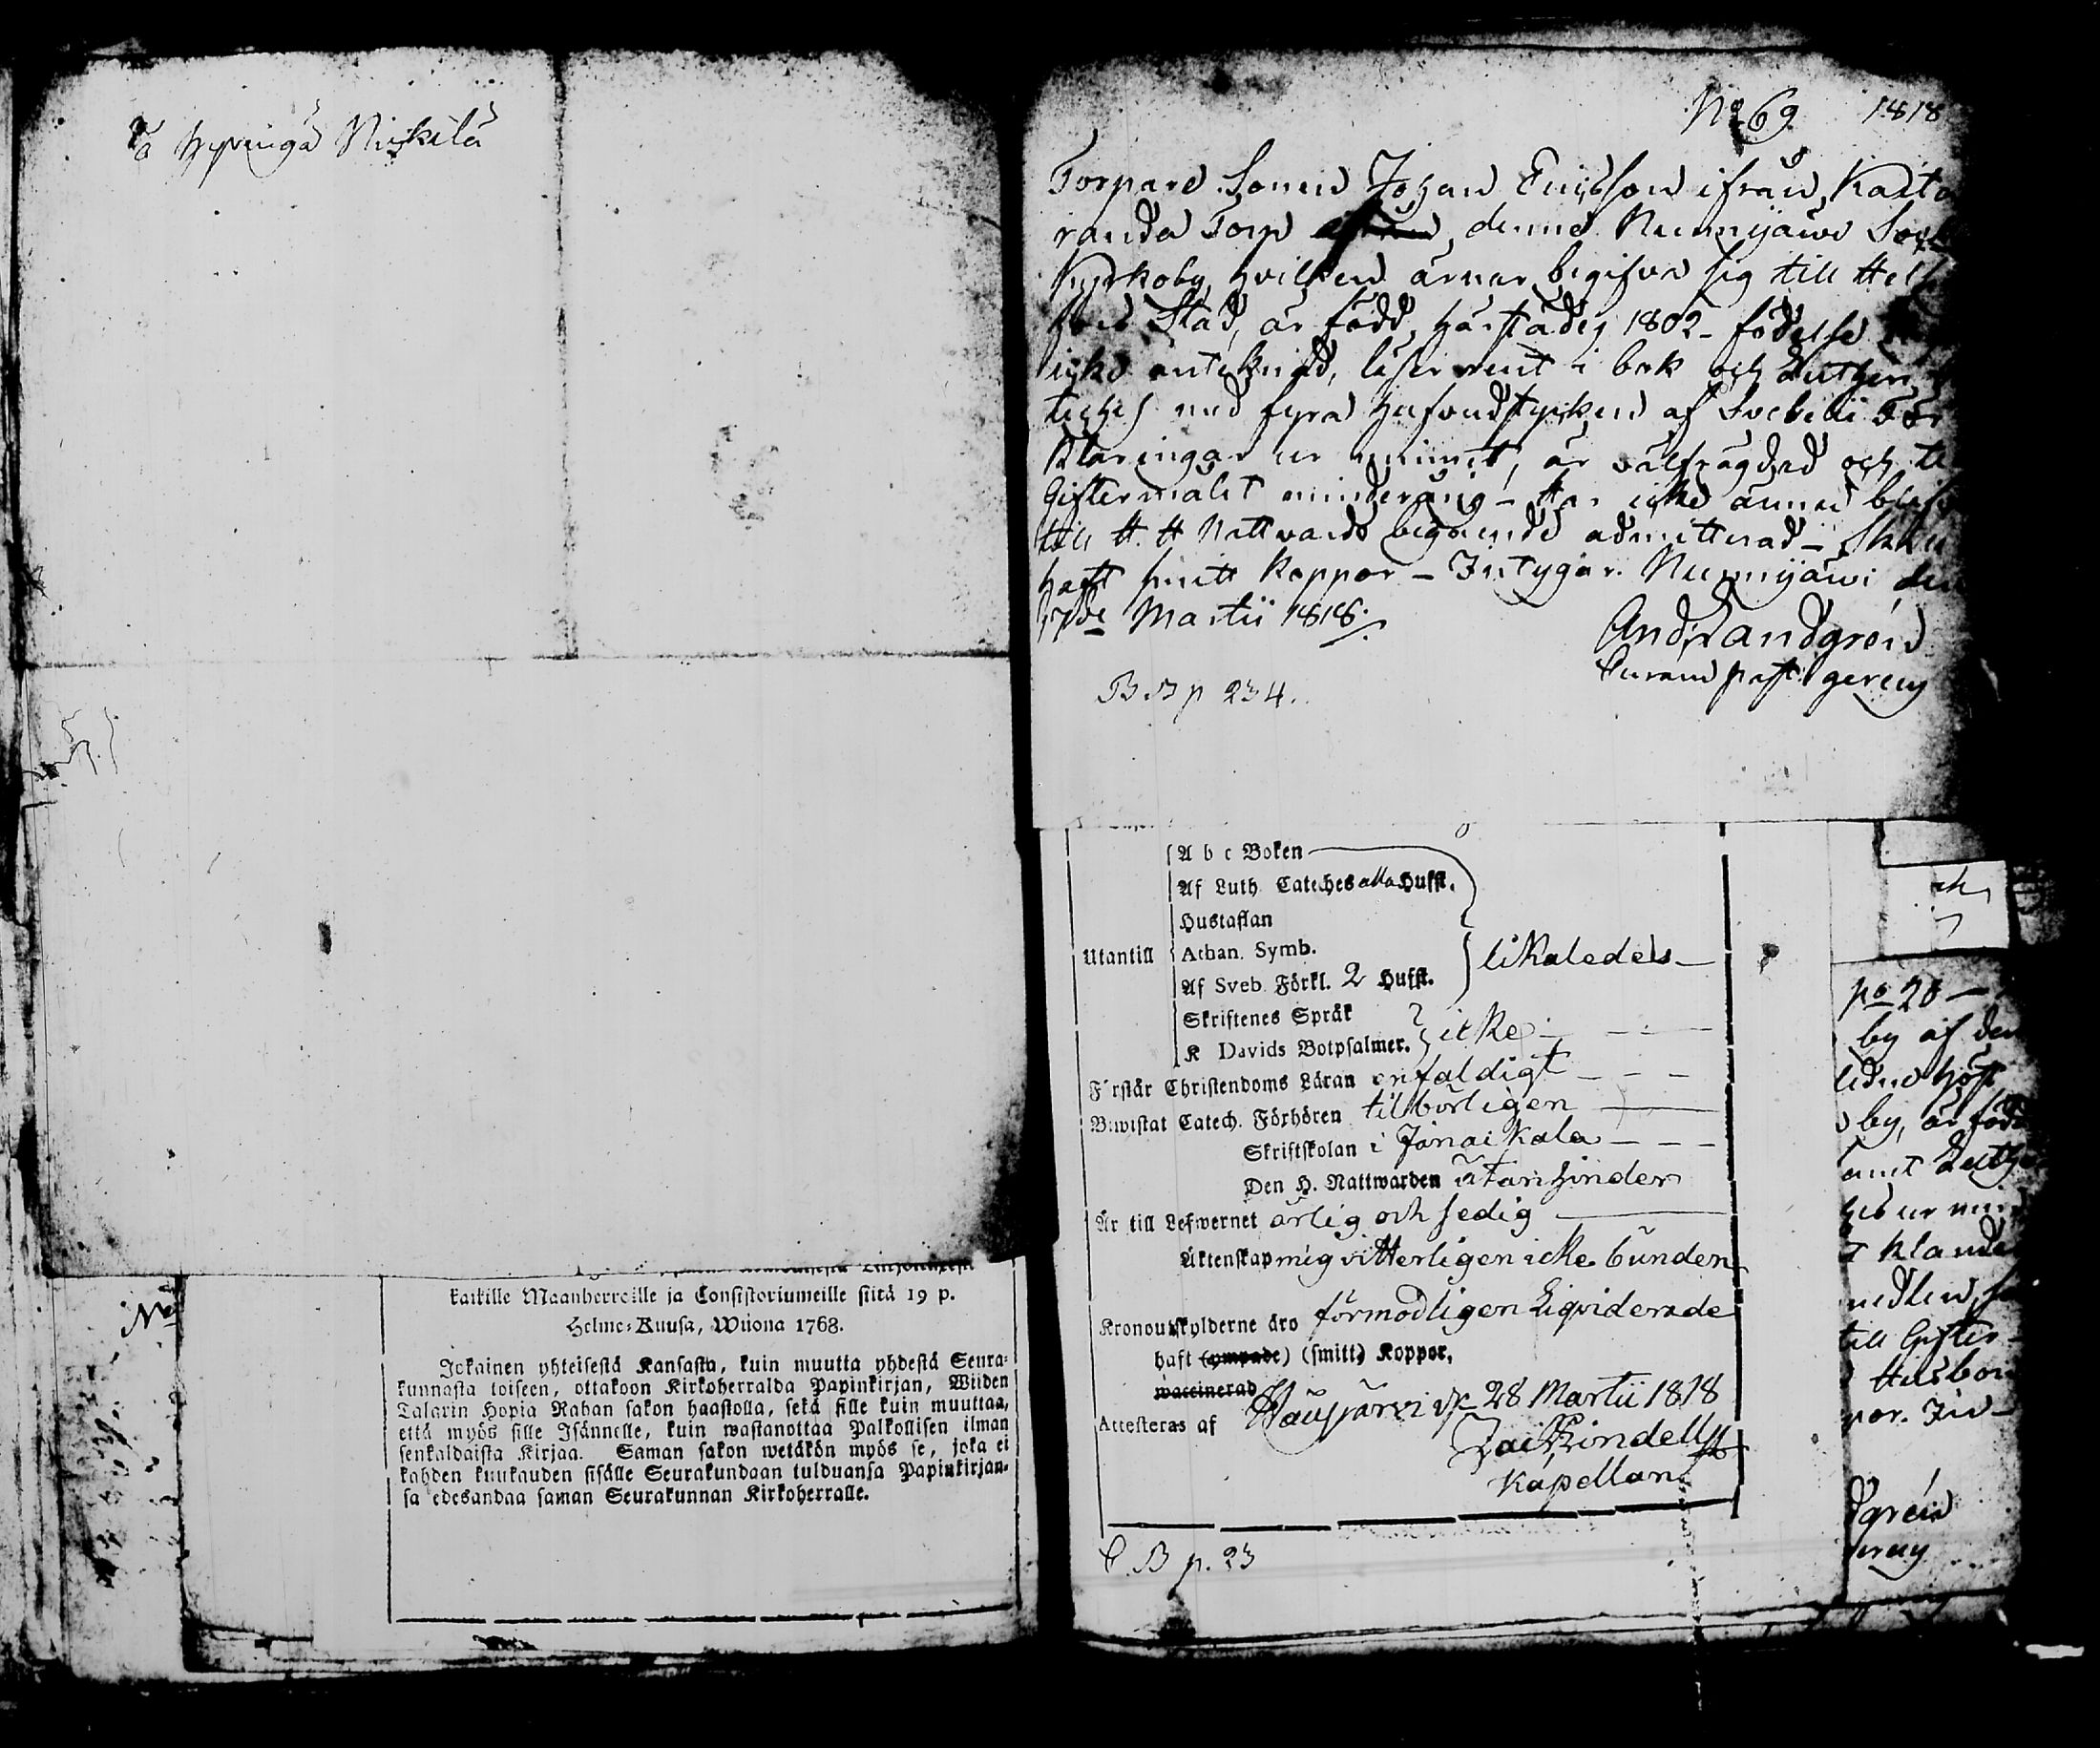 Hyvingä Nickilä
No 69 1818
Torpare Sonen Johan Ericsson ifrån Kaita
randa Torp denne Nurmijärvi Sock
Kyrkoby, hvilken ärnar begifva sig till Hels
fors Stad, är född härstädes 1802 födelse
icke anteknad, läser rent i bok och Luther
teches med fyra hufvudstycken af Svebelii För
klaringar ur minnet, är välfrägdad och til
Giftermålet minderårig - Har icke ännu blifv
till H. H. Nattvards begående admitterad - Skall
haft smitt Koppor - Intygar. Nurmijärvi den
17de Martii 1818.
And. Sandgrén
B.B p 234.
A b c Boken
Af Luth. Cateches alla Hufst.
Hustaflan
Utantill Athan. Symb.
Af Sveb. Förkl. 2 Hufst.
likaledes
Skriftenes Språk
K Davids Botpsalmer. icke
Förstår Christendoms Läran enfaldigt
Bewistat Catech. Förhören tilbörligen
Skriftskolan i Janakkala
Den H. Nattwarden utan hinder
Är till Lefwernet ärlig och sedig
Äktenskap mig vitterligen icke bunden
Kronoutskylderne äro förmodligen Liqviderade
haft (ympade) (smitt) Koppor,
waccinerad
Attesteras af Hausjärvi d. 28 Martii 1818
Lindell
Kapellan
C.B p. 23
No
kaikille Maanherroille ja Consistoriumeille siitä 19 p.
Helme-Kuusa, Wuona 1768.
Jokainen yhteisestä Kansasta, kuin muutta yhdestä Seura-
kunnasta toiseen, ottakoon Kirkoherralda Papinkirjan, Wiiden
Talarin Hopia Rahan sakon haastolla, sekä sille kuin muuttaa,
että myös sille Isännelle, kuin wastanottaa Palkollisen ilman
senkaldaista Kirjaa. Saman sakon wetäkön myös se, joka ei
kahden kuukauden sisälle Seurakundaan tulduansa Papinkirjan-
sa edesandaa saman Seurakunnan Kirkoherralle.
by af den
by, är född
till Gifter-
grén